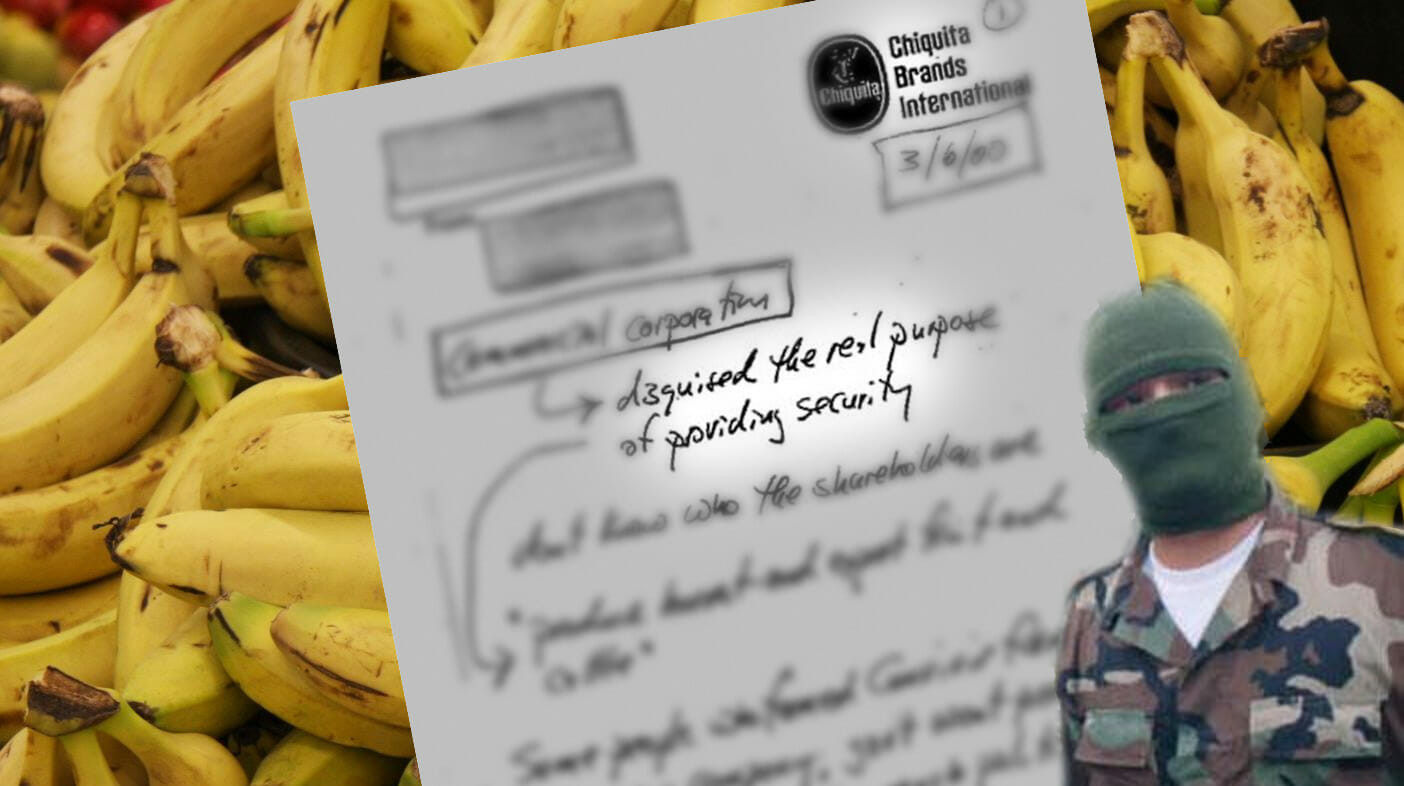 1
Chiquita
Chiquita
Brands
International
3/6/00
Commercial corporation
disguised the real purpose
of providing security
don't know who the shareholders are
"produce harvest and export fruit and
cattle"
Some people who formed
company, just want